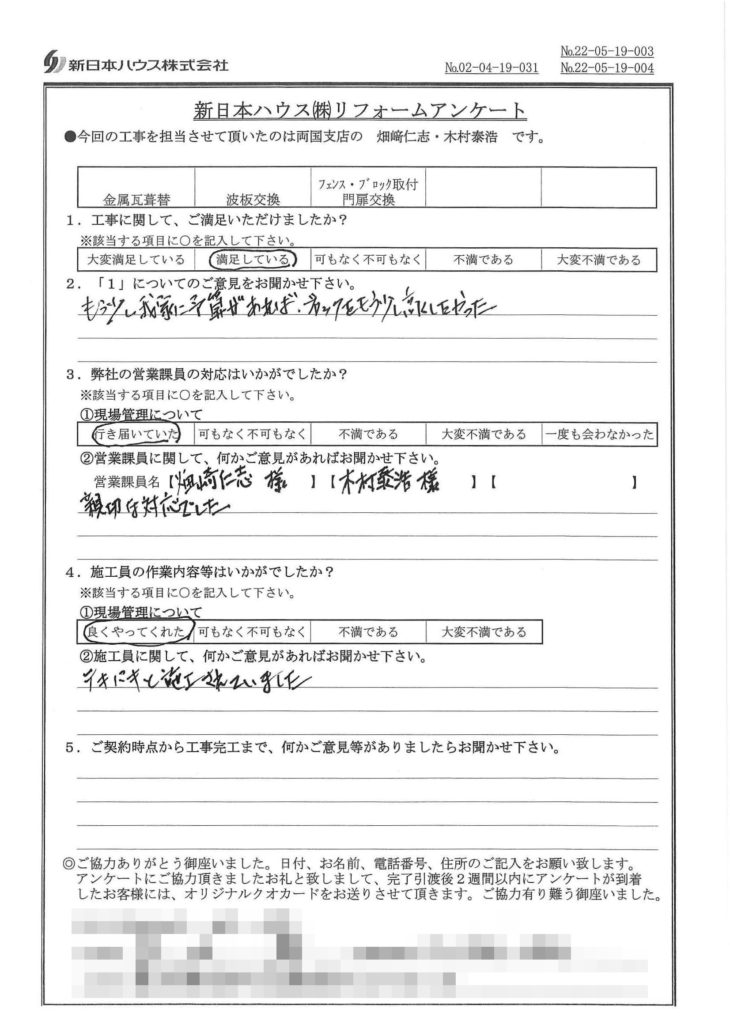 新日本ハウス株式会社
№22-05-19-003
№02-04-19-031 №22-05-19-004
新日本ハウス㈱リフォームアンケート
●今回の工事を担当させて頂いたのは両国支店の 畑﨑仁志・木村泰浩 です。
金属瓦葺替 波板交換 ﾌｪﾝｽ・ﾌﾞﾛｯｸ取付 門扉交換
１．工事に関して、ご満足いただけましたか？
※該当する項目に○を記入して下さい。
大変満足している 満足している 可もなく不可もなく 不満である 大変不満である
２．「１」についてのご意見をお聞かせ下さい。
もう少し我家に予算があれば、ブロックをもう少し したかった
３．弊社の営業課員の対応はいかがでしたか？
※該当する項目に○を記入して下さい。
①現場管理について
行き届いていた 可もなく不可もなく 不満である 大変不満である 一度も会わなかった
②営業課員に関して、何かご意見があればお聞かせ下さい。
営業課員名【畑﨑仁志 様 】【木村泰浩 様 】【 】
親切な対応でした
４．施工員の作業内容等はいかがでしたか？
※該当する項目に○を記入して下さい。
①現場管理について
良くやってくれた 可もなく不可もなく 不満である 大変不満である
②施工員に関して、何かご意見があればお聞かせ下さい。
テキパキと施工されていました
５．ご契約時点から工事完工まで、何かご意見等がありましたらお聞かせ下さい。
◎ご協力ありがとう御座いました。日付、お名前、電話番号、住所のご記入をお願い致します。
アンケートにご協力頂きましたお礼と致しまして、完了引渡後２週間以内にアンケートが到着
したお客様には、オリジナルクオカードをお送りさせて頂きます。ご協力有り難う御座いました。